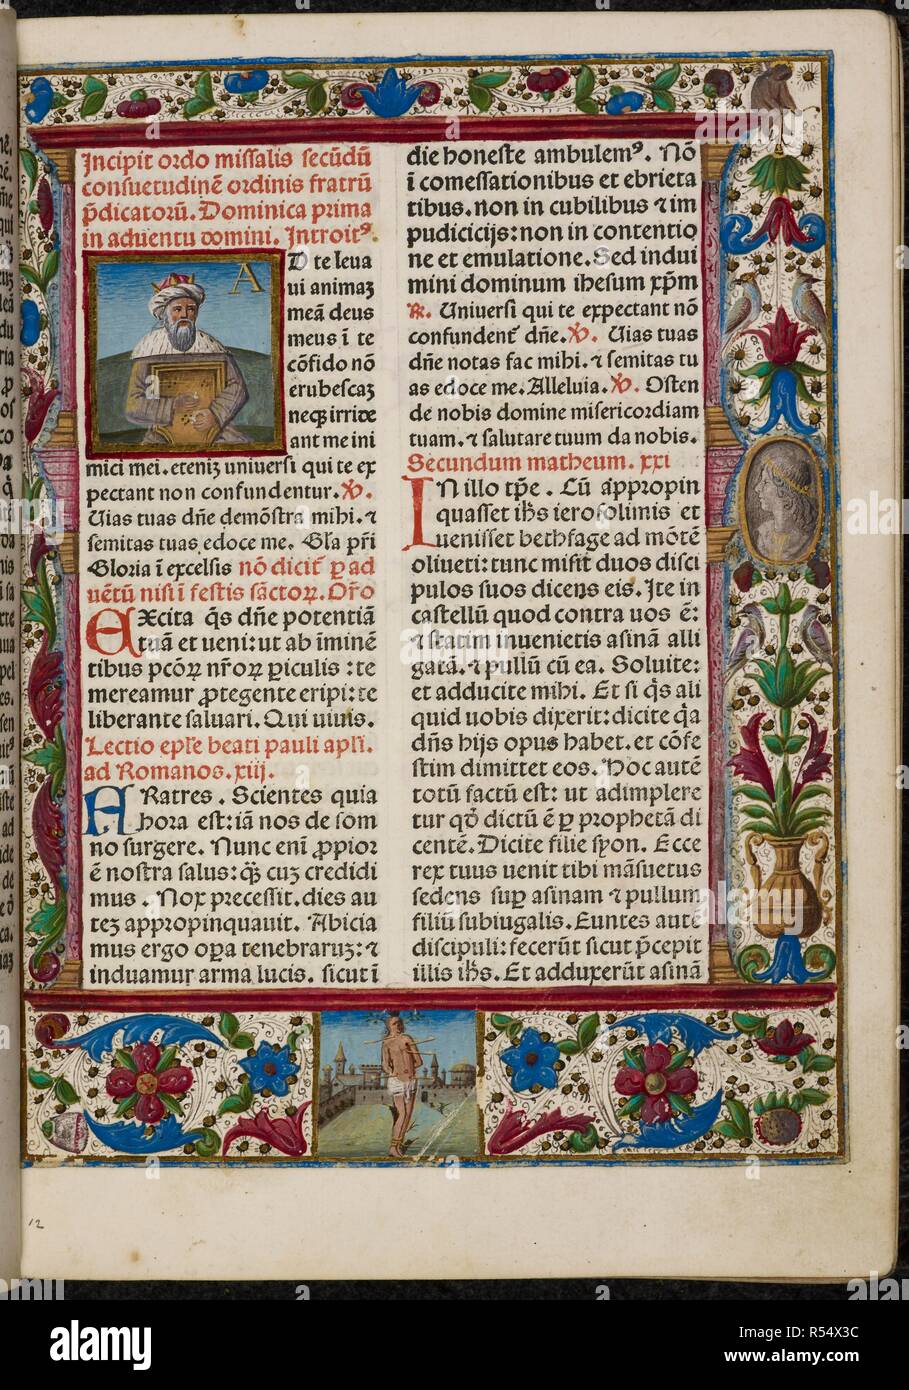 Incipit ordo missalis secūdū
consuetudinē ordinis fratrū
p̄dicatorū. Dominica prima
in aduentu domini. Introitꝰ.
A
D te leua
ui animaꝫ
meā deus
meus ī te
cōfido nō
erubescaꝫ
neqꝫ irride
ant me ini
mici mei. eteniꝫ uniuersi qui te ex
pectant non confundentur. ℣.
Uias tuas dn̄e demōstra mihi. ⁊
semitas tuas edoce me. Gl̄a pr̄i
Gloria ī excelsis nō dicit̄ ꝑ ad
uētū nisi ī festis sāctoꝝ. Or̄o
EXcita q̄s dn̄e potentiā
tuā et ueni: ut ab īminē
tibus pcōꝝ nr̄oꝝ ꝑiculis: te
mereamur ꝓtegente eripi: te
liberante saluari. Qui uiuis.
Lectio epl̄e beati pauli apl̄i.
ad Romanos. xiij.
FRatres. Scientes quia
hora est: iā nos de som
no surgere. Nunc enī ꝓpior
ē nostra salus: qꝫ̄ cuꝫ credidi
mus. Nox precessit. dies au
teꝫ appropinquauit. Abicia
mus ergo oꝑa tenebraruꝫ: ⁊
induamur arma lucis. sicut ī
die honeste ambulemꝰ. Nō
ī comessationibus et ebrieta
tibus. non in cubilibus ⁊ im
pudicicijs: non in contentio
ne et emulatione. Sed indui
mini dominum ihesum xp̄m
℟. Uniuersi qui te expectant nō
confundent̄ dn̄e. ℣. Uias tuas
dn̄e notas fac mihi. ⁊ semitas tu
as edoce me. Alleluia. ℣. Osten
de nobis domine misericordiam
tuam. ⁊ salutare tuum da nobis.
Secundum matheum. xxi
IN illo tp̄e. Cū appropin
quasset ih̄s ierosolimis et
uenisset bethfage ad mōtē
oliueti: tunc misit duos disci
pulos suos dicens eis. Ite in
castellū quod contra uos ē:
⁊ statim inuenietis asinā alli
gatā. ⁊ pullū cū ea. Soluite:
et adducite mihi. Et si q̄s ali
quid uobis dixerit: dicite q̄a
dn̄s hijs opus habet. et cōfe
stim dimittet eos. Hoc autē
totū factū est: ut adimplere
tur qd̄ dictū ē ꝑ prophetā di
centē. Dicite filie syon. Ecce
rex tuus uenit tibi māsuetus
sedens suꝑ asinam ⁊ pullum
filiū subiugalis. Euntes autē
discipuli: fecerūt sicut p̄cepit
illis ih̄s. Et adduxerūt asinā
12
alamy
Image ID: R54X3C
www.alamy.com